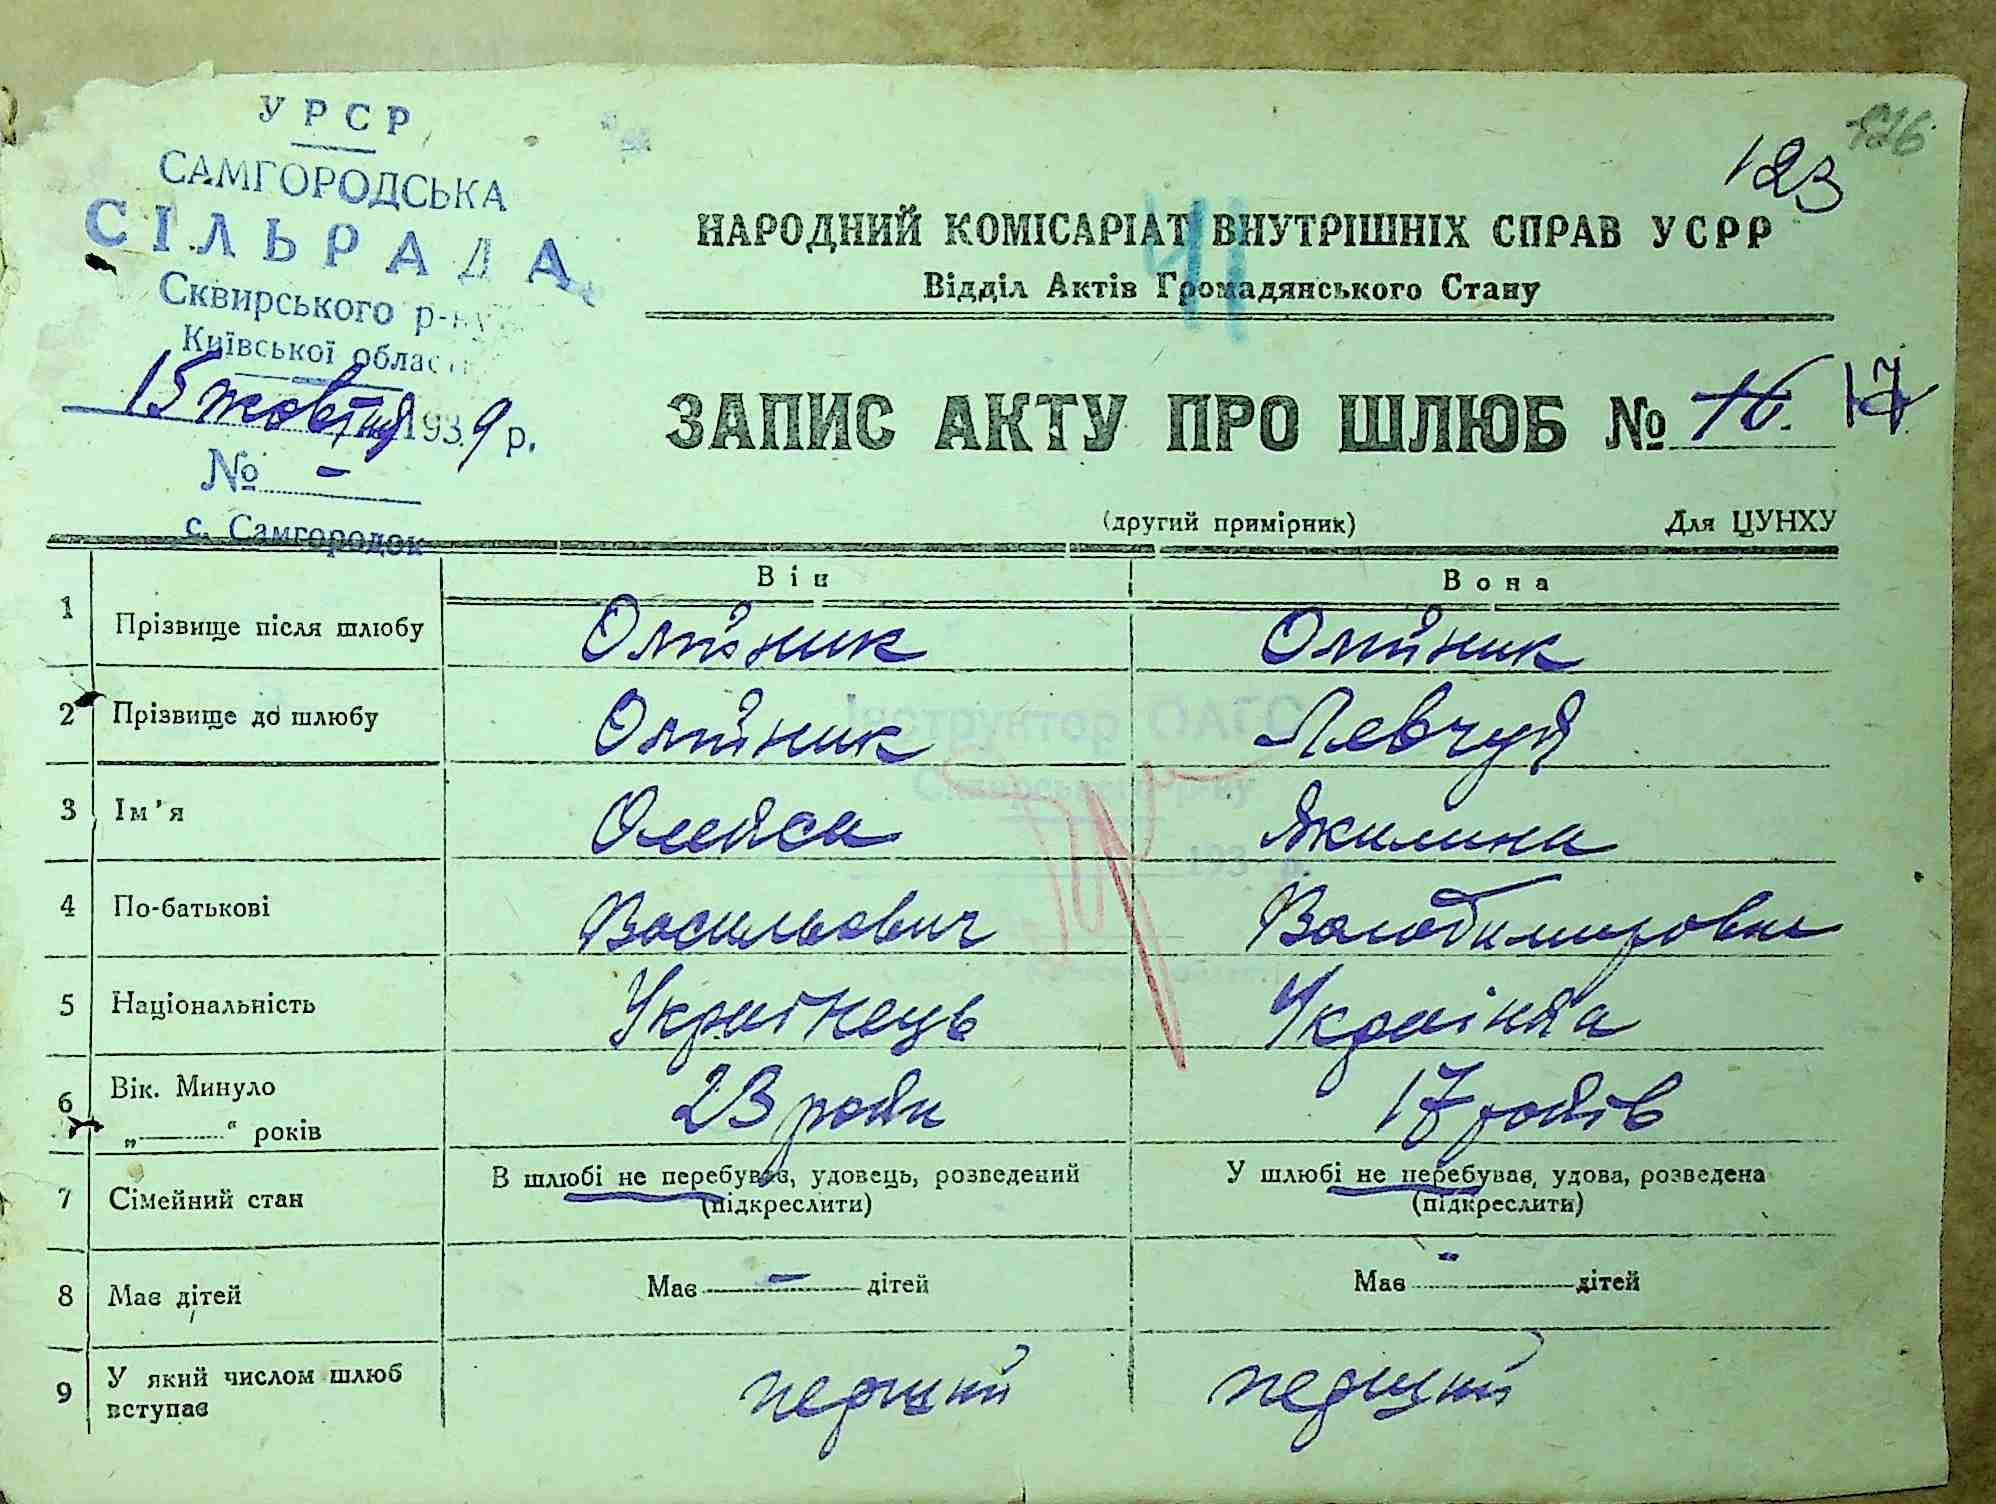 УРСР
САМГОРОДСЬКА
СІЛЬРАДА
Сквирського р-ну
Київської області
15 жовтня 1939 р.
№ –
с. Самгородок
123
41
НАРОДНИЙ КОМІСАРІАТ ВНУТРІШНІХ СПРАВ УСРР
Відділ Актів Громадянського Стану
ЗАПИС АКТУ ПРО ШЛЮБ № 16. 17
(другий примірник) Для ЦУНХУ
Він Вона
1 Прізвище після шлюбу Олійник Олійник
2 Прізвище до шлюбу Олійник Левчук
Інструктор ОАГС
Сквирського р-ну
193 р.
3 Ім'я Олекса Якилина
4 По-батькові Васильович Володимировна
5 Національність Українець Українка
6 Вік. Минуло
„——“ років 23 роки 17 років
7 Сімейний стан В шлюбі не перебував, удовець, розведений У шлюбі не перебував, удова, розведена
(підкреслити) (підкреслити)
8 Має дітей Має — дітей Має — дітей
9 У який числом шлюб
вступає перший перший